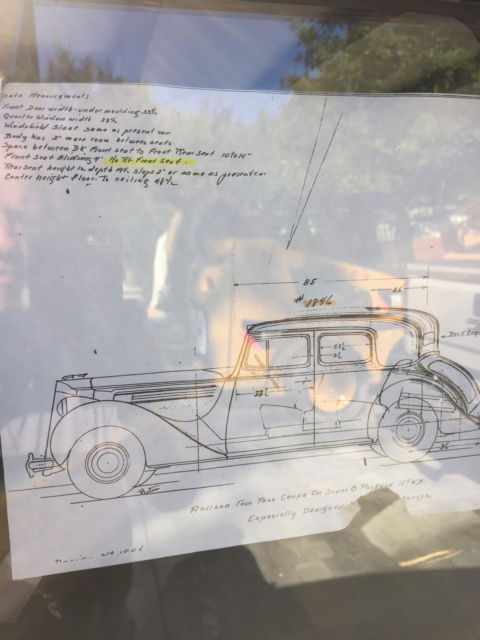 Measurements
Front Door width-under moulding 33½
Quarter Window width 23½
Windshield Slant same as present car
Body has 3" more room between seats
Space between BK. Front seat to Front Rear Seat 10 to 14"
Front Seat Sliding 4" No Rt. Front Seat.
Rear seat height in. depth Slope 2" or same as present car
Center height floor. To ceiling 48½
85
26
# 1846
23½
33½
36
Rollson Four Pass Coupe On Super 8 Packard 127 W.B
Especially Designed